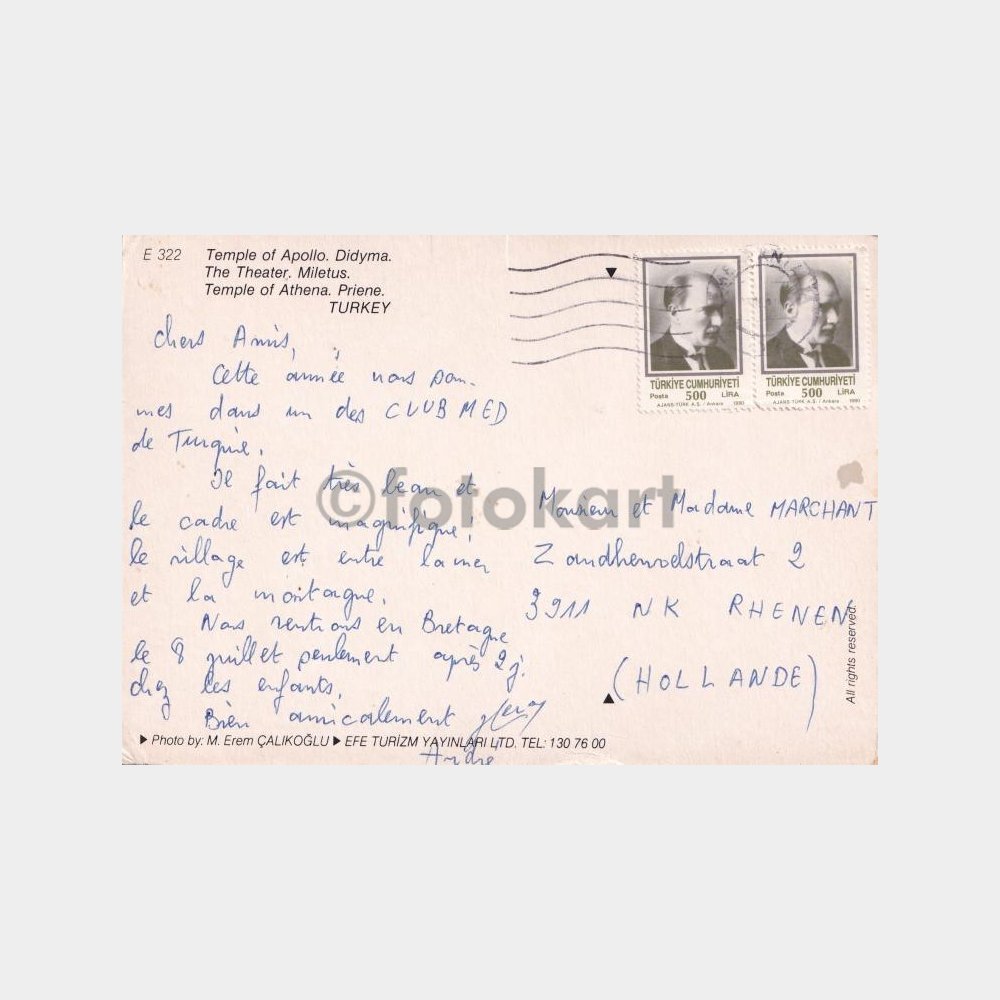 E 322 Temple of Apollo. Didyma.
The Theater. Miletus.
Temple of Athena. Priene.
TURKEY
TÜRKİYE CUMHURİYETİ
Posta 500 LİRA
AJANS-TÜRK A.Ş. / Ankara 1990
TÜRKİYE CUMHURİYETİ
Posta 500 LİRA
AJANS-TÜRK A.Ş. / Ankara 1990
Chers Amis,
Cette année nous som-
mes dans un des CLUB MED
de Turquie.
Il fait très beau et
le cadre est magnifique!
le village est entre la mer
et la montagne.
Nous rentrons en Bretagne
le 8 juillet seulement après 2 j.
chez les enfants.
Bien amicalement
André
©fotokart
Monsieur et Madame MARCHANT
Zandhenvelstraat 2
3911 NK RHENEN
(HOLLANDE)
All rights reserved.
Photo by: M. Erem ÇALIKOĞLU EFE TURİZM YAYINLARI LTD. TEL: 130 76 00